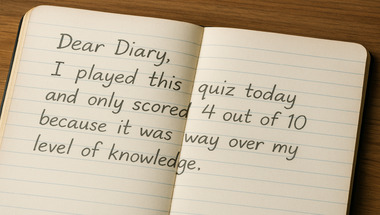 Dear Diary,
I played this quiz today
and only scored 4 out of 10
because it was way over my
level of knowledge.